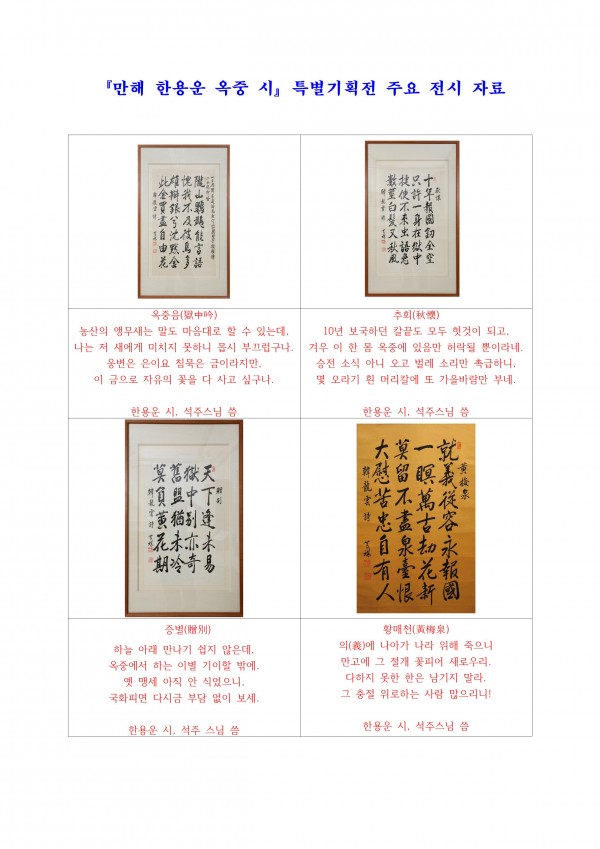 『만해 한용운 옥중 시』 특별기획전 주요 전시 자료
隴山鸚鵡能言語
愧我不及彼鳥多
雄辯銀兮沈默金
此金買盡自由花
韓龍雲 詩
秋懷
十年報國劍全空
只許一身在獄中
捷使不來虫語急
數莖白髮又秋風
韓龍雲 詩
옥중음(獄中吟)
농산의 앵무새는 말도 마음대로 할 수 있는데,
나는 저 새에게 미치지 못하니 몹시 부끄럽구나.
웅변은 은이요 침묵은 금이라지만,
이 금으로 자유의 꽃을 다 사고 싶구나.
한용운 시, 석주스님 씀
추회(秋懷)
10년 보국하던 칼끝도 모두 헛것이 되고,
겨우 이 한 몸 옥중에 있음만 허락될 뿐이라네.
승전 소식 아니 오고 벌레 소리만 촉급하니,
몇 오라기 흰 머리칼에 또 가을바람만 부네.
한용운 시, 석주스님 씀
贈別
天下逢未易
獄中別亦奇
舊盟猶未冷
莫負黃花期
韓龍雲 詩
黃梅泉
就義從容永報國
一瞑萬古劫花新
莫留不盡泉臺恨
大慰苦忠自有人
韓龍雲 詩
증별(贈別)
하늘 아래 만나기 쉽지 않은데,
옥중에서 하는 이별 기이할 밖에.
옛 맹세 아직 안 식었으니,
국화피면 다시금 부담 없이 보세.
한용운 시, 석주 스님 씀
황매천(黃梅泉)
의(義)에 나아가 나라 위해 죽으니
만고에 그 절개 꽃피어 새로우리.
다하지 못한 한은 남기지 말라.
그 충절 위로하는 사람 많으리니!
한용운 시, 석주스님 씀